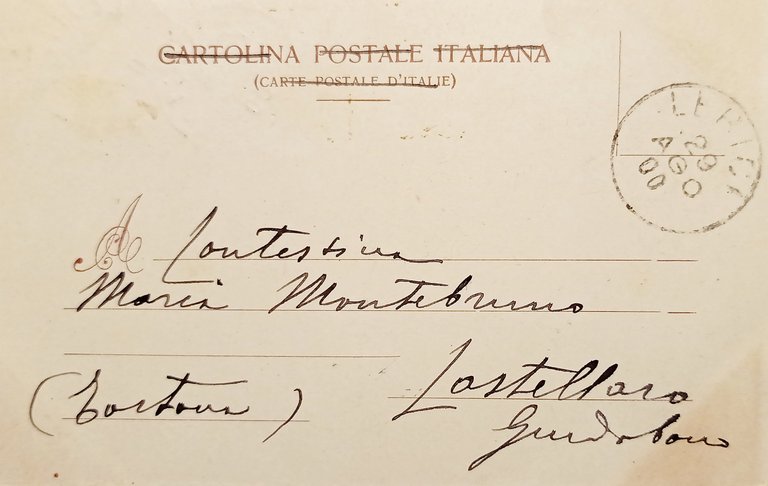 CARTOLINA POSTALE ITALIANA
(CARTE POSTALE D'ITALIE)
LERICI
29
AGO
00
A Contessina
Maria Montebruno
Castellaro
Guidobono
(Tortona)